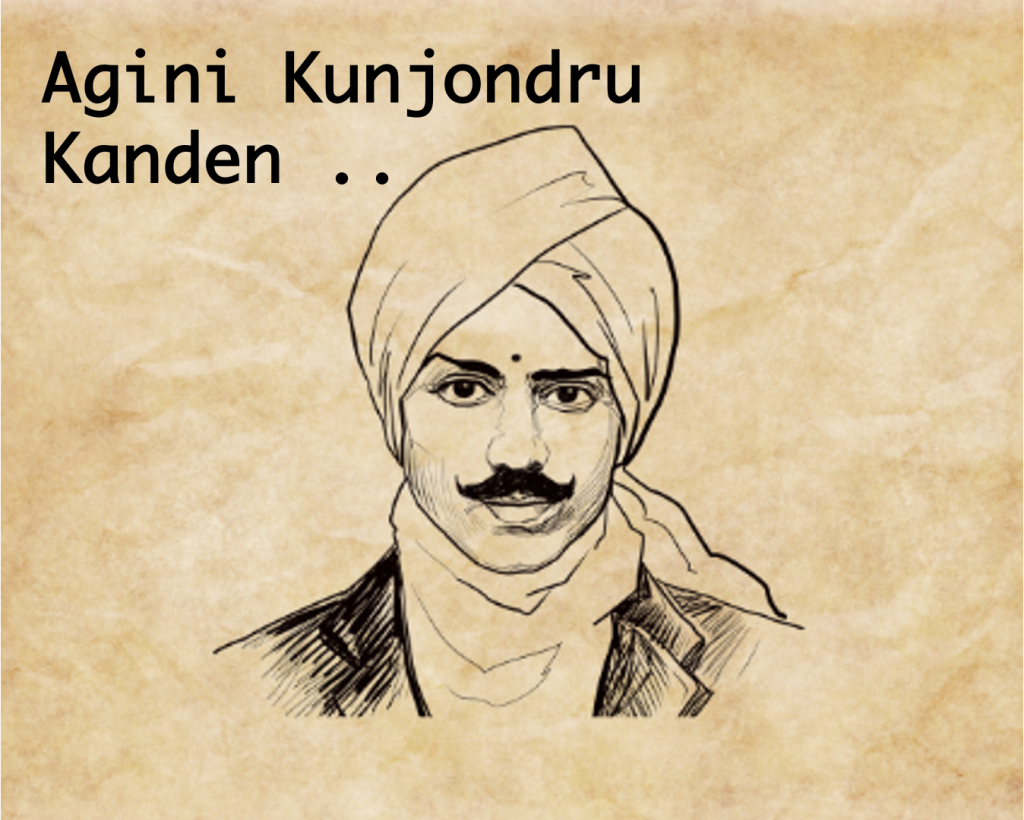 Agini Kunjondru
Kanden ..